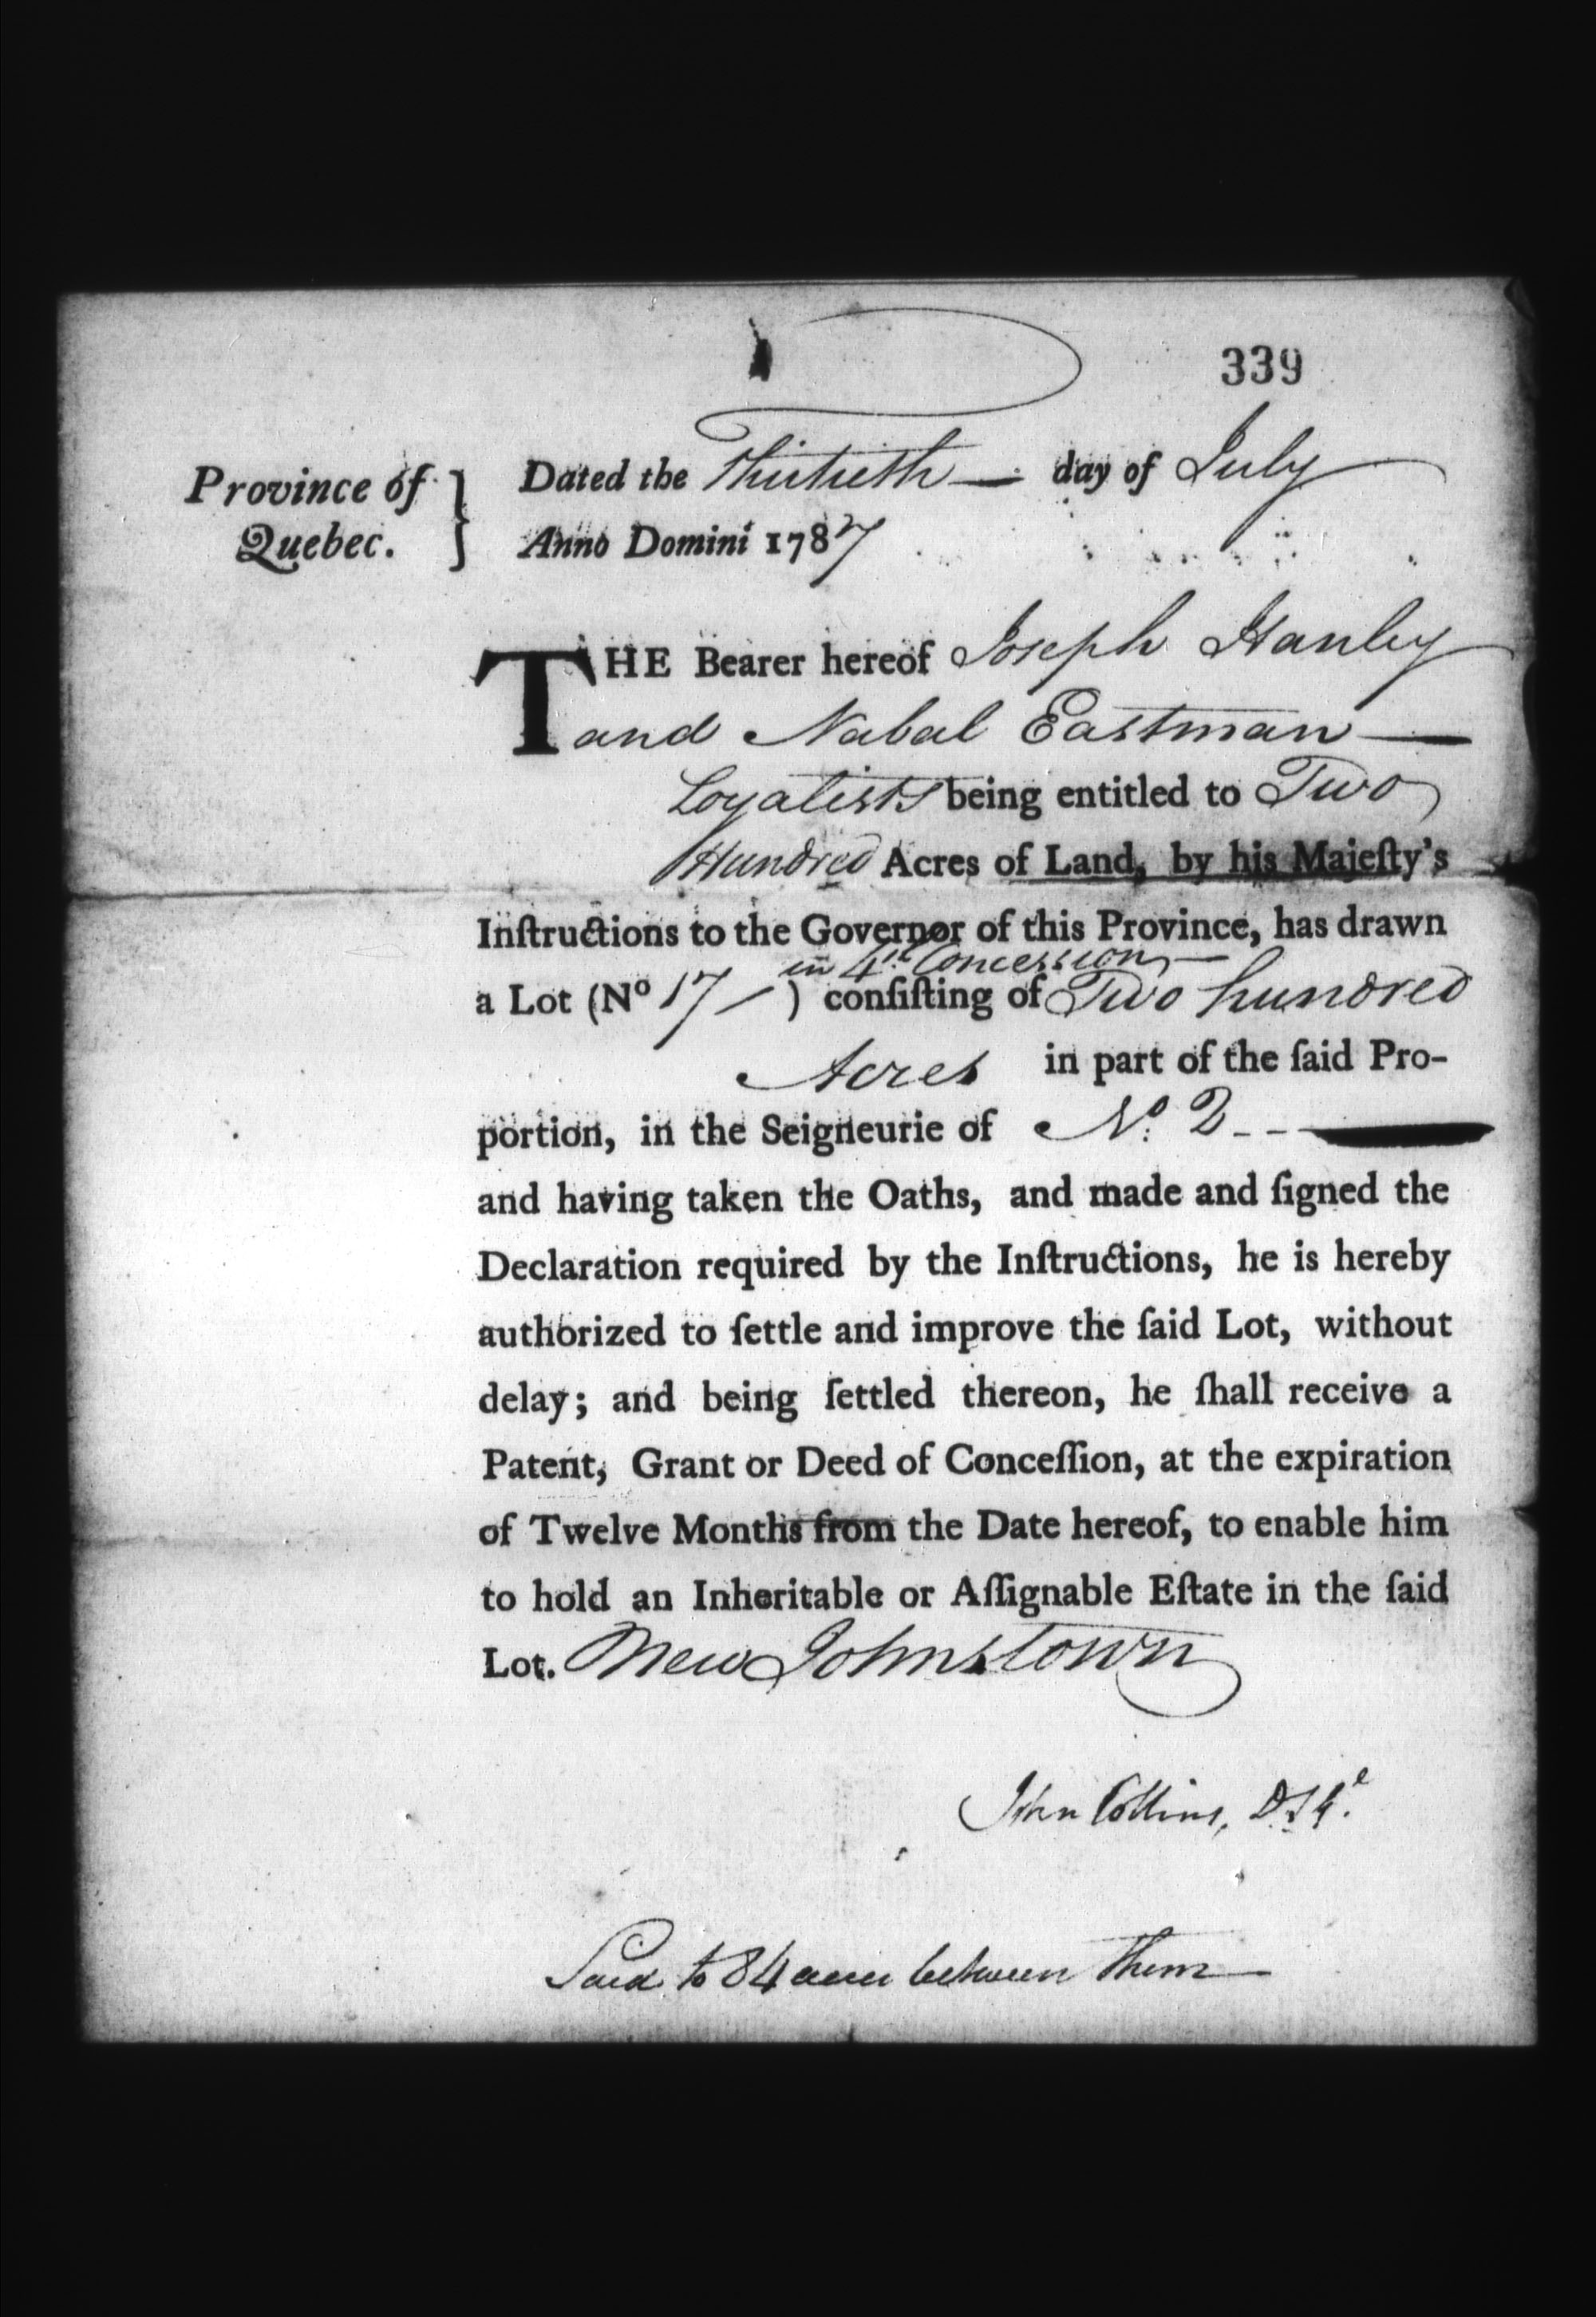 339
Province of Quebec. } Dated the Thirtieth — day of July
Anno Domini 1787
THE Bearer hereof Joseph Hanley
and Nabal Eastman —
Loyalists being entitled to Two
Hundred Acres of Land, by his Majeſty's
Inſtructions to the Governor of this Province, has drawn
in 4th Concession —
a Lot (No 17 — ) conſiſting of Two hundred
Acres in part of the ſaid Pro-
portion, in the Seigneurie of No. 2 - - —
and having taken the Oaths, and made and ſigned the
Declaration required by the Inſtructions, he is hereby
authorized to ſettle and improve the ſaid Lot, without
delay; and being ſettled thereon, he ſhall receive a
Patent, Grant or Deed of Conceſſion, at the expiration
of Twelve Months from the Date hereof, to enable him
to hold an Inheritable or Aſſignable Eſtate in the ſaid
Lot. New Johnstown
John Collins, D.S.Gl.
Said to 84 acres between them —